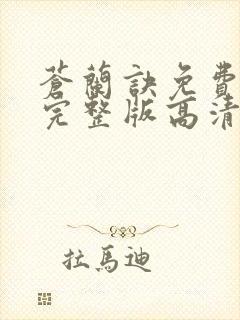 蒼蘭訣免費
完整版高清
拉馬迪